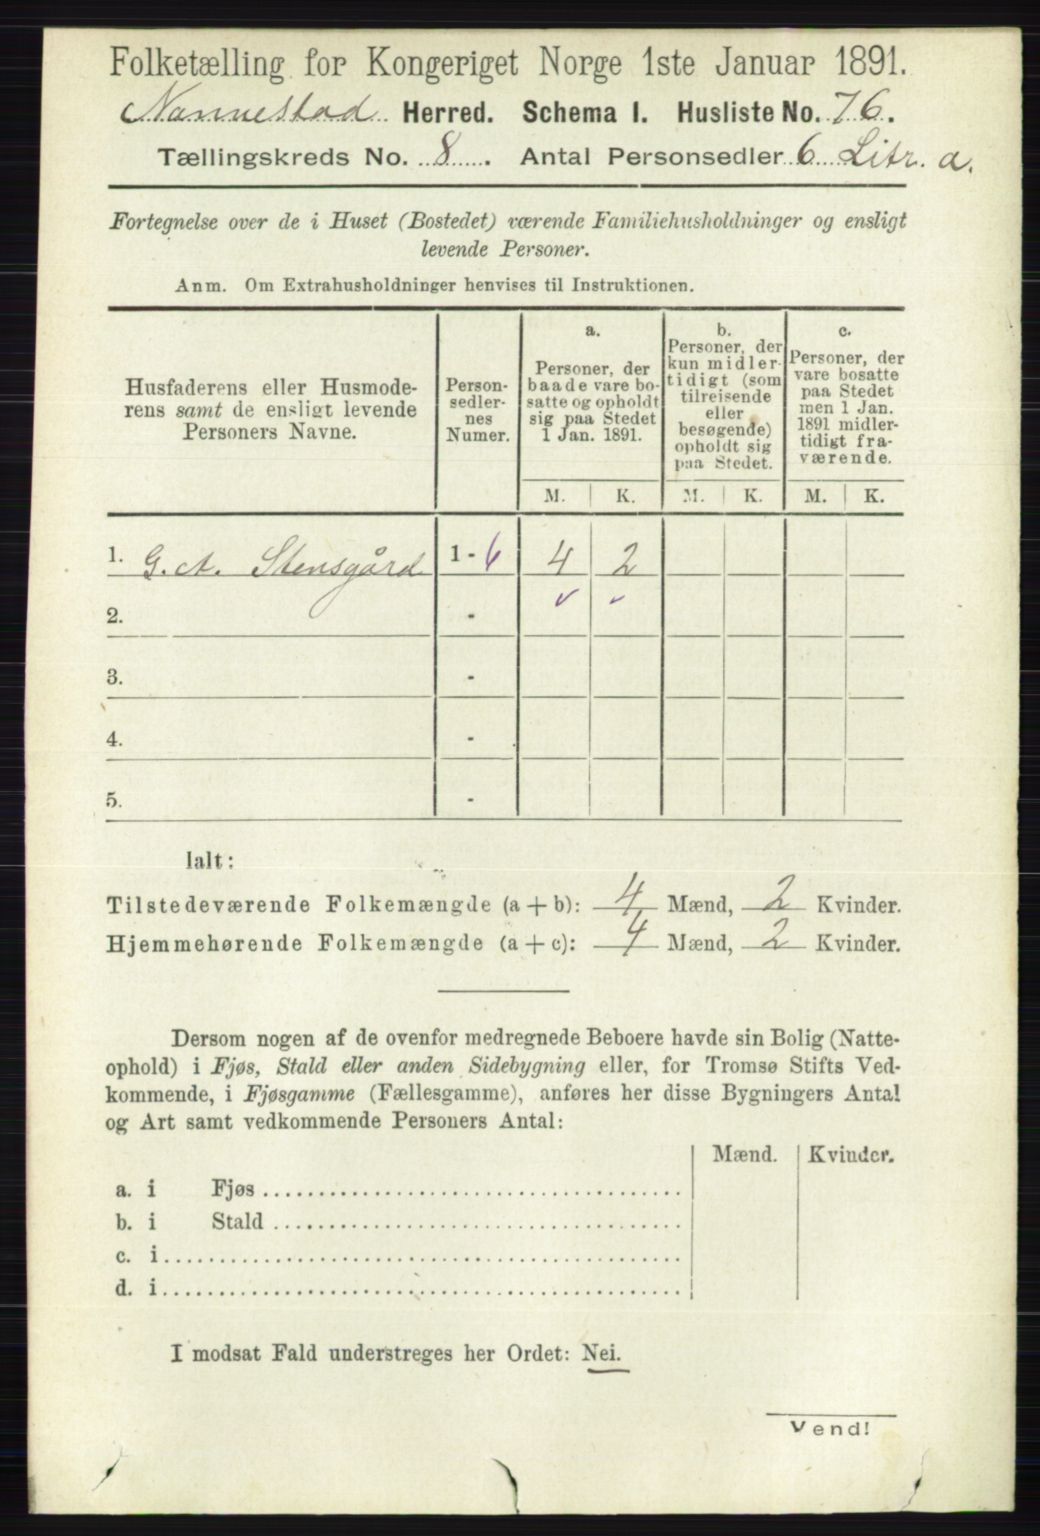 Folketælling for Kongeriget Norge 1ste Januar 1891.
Nannestad Herred. Schema I. Husliste No. 76.
Tællingskreds No. 8. Antal Personsedler 6 Litr. a.
Fortegnelse over de i Huset (Bostedet) værende Familiehusholdninger og ensligt
levende Personer.
Anm. Om Extrahusholdninger henvises til Instruktionen.
Husfaderens eller Husmode-
rens samt de ensligt levende
Personers Navne.
Person-
sedler-
nes
Numer.
a.
Personer, der
baade vare bo-
satte og opholdt
sig paa Stedet
1 Jan. 1891.
b.
Personer, der
kun midler-
tidigt (som
tilreisende
eller
besøgende)
opholdt sig
paa Stedet.
c.
Personer, der
vare bosatte
paa Stedet
men 1 Jan.
1891 midler-
tidigt fra-
værende.
M. K. M. K. M. K.
1. G. A. Stensgård 1 - 6 4 2
2. -
3. -
4. -
5. -
Ialt:
Tilstedeværende Folkemængde (a + b): 4 Mænd, 2 Kvinder.
Hjemmehørende Folkemængde (a + c): 4 Mænd, 2 Kvinder.
Dersom nogen af de ovenfor medregnede Beboere havde sin Bolig (Natte-
ophold) i Fjøs, Stald eller anden Sidebygning eller, for Tromsø Stifts Ved-
kommende, i Fjøsgamme (Fællesgamme), anføres her disse Bygningers Antal
og Art samt vedkommende Personers Antal:
Mænd. Kvinder.
a. i Fjøs
b. i Stald
c. i
d. i
I modsat Fald understreges her Ordet: Nei.
Vend!